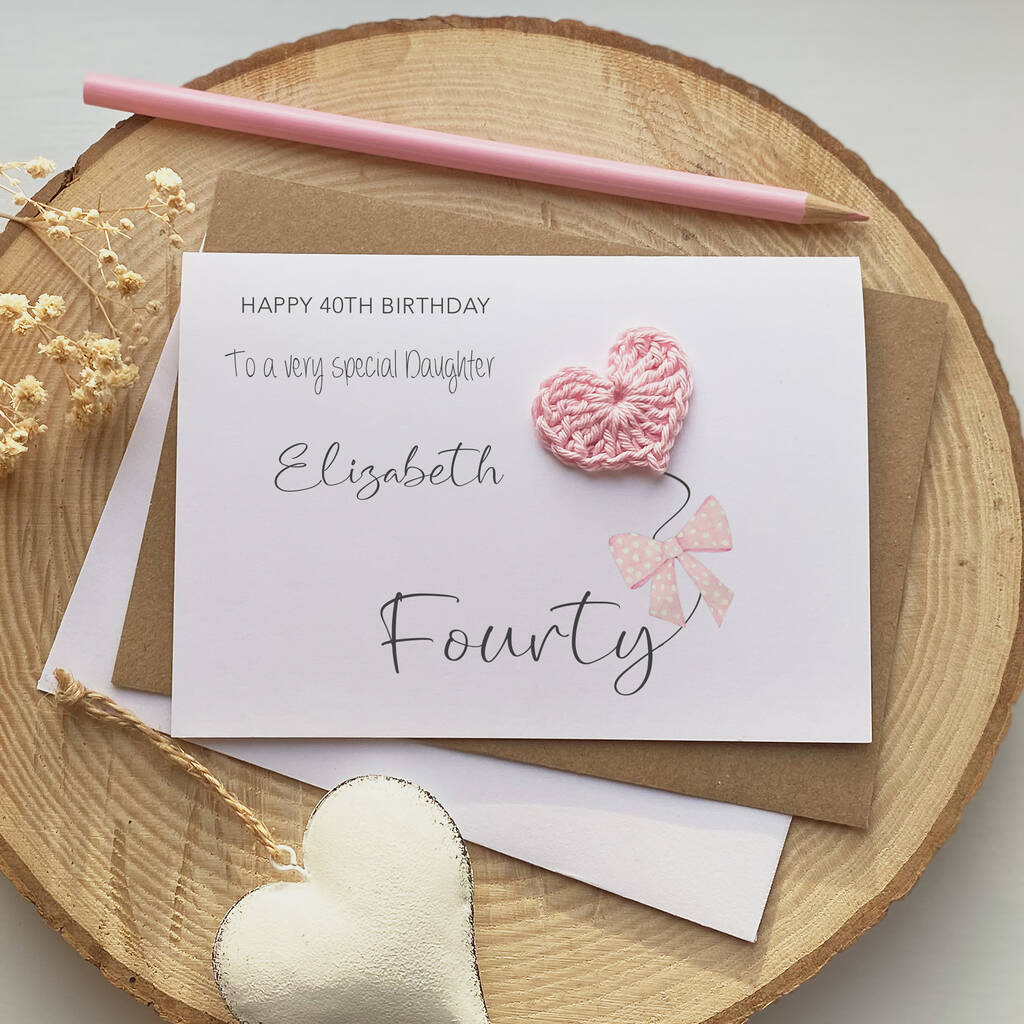 HAPPY 40TH BIRTHDAY
To a very special Daughter
Elizabeth
Fourty